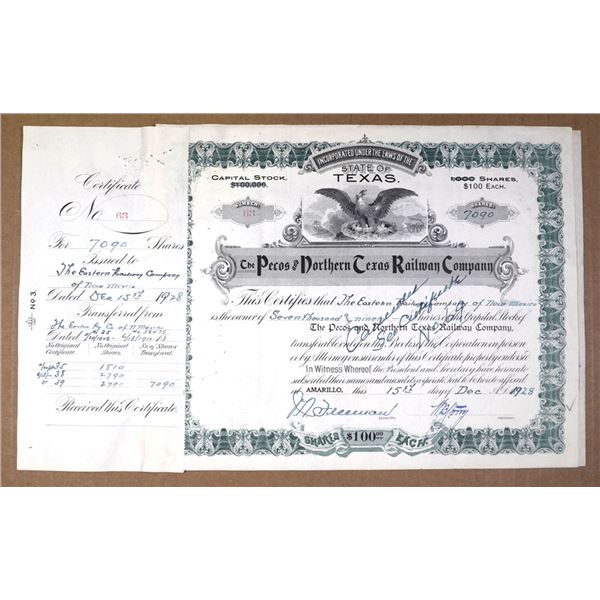 Certificate
No 63
For 7090 Shares
Issued to
The Eastern Railway Company
of New Mexico
Dated Dec 15th 1928
Transferred from
Dated
No. Original Certificate. No. Original Shares. No. of Shares Transferred.
35 1510
38 2790
39 2790 7090
Received this Certificate.
No 3.
INCORPORATED UNDER THE LAWS OF THE
STATE OF
TEXAS.
CAPITAL STOCK,
$100,000.
1,000 SHARES,
$100 EACH.
NUMBER
63
SHARES
7090
The Pecos and Northern Texas Railway Company
This Certifies that The Eastern Railway Company of New Mexico
is the owner of Seven Thousand & ninety Shares of the Capital Stock of
The Pecos and Northern Texas Railway Company,
transferable only on the Books of the Corporation in person
or by Attorney on surrender of this Certificate properly endorsed
In Witness Whereof, the President and Secretary have hereunto
subscribed their names and caused its corporate seal to be hereto affixed
at AMARILLO, this 15th day of Dec A.D. 1928
Cancelled
See Certificate
No
Freeman
SECRETARY
PRESIDENT
SHARES $100.00 EACH.